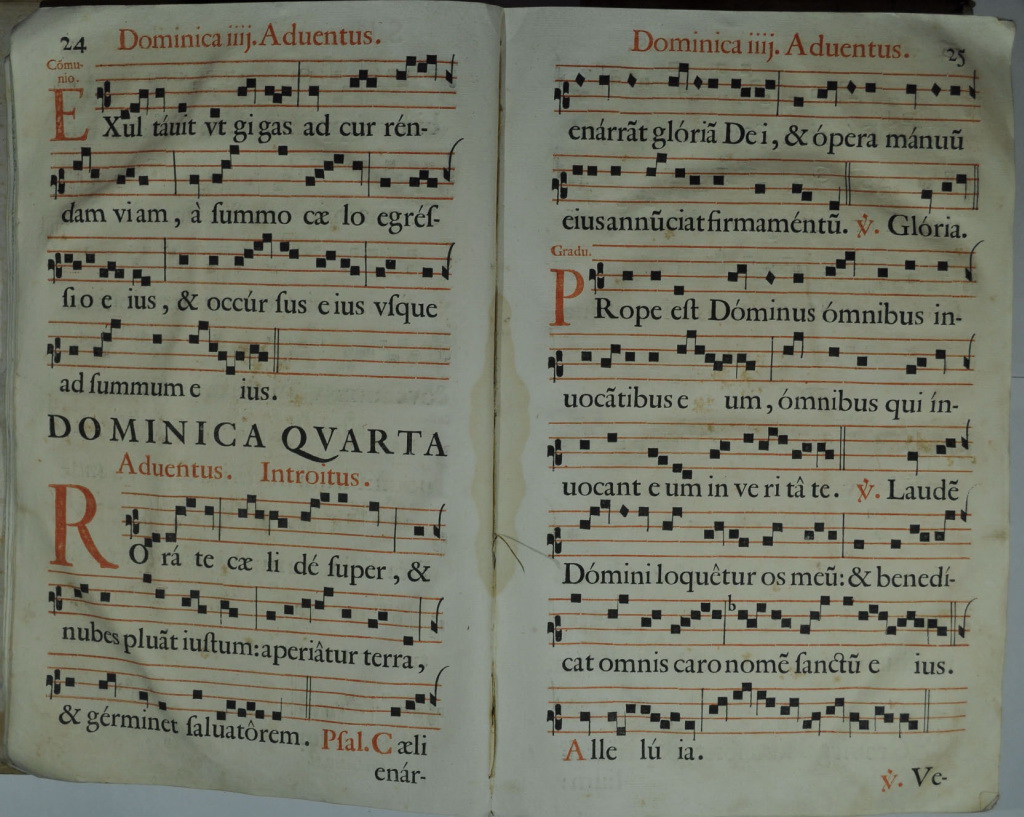 24 Dominica iiij. Aduentus.
Cómu-
nio.
EXul táuit vt gi gas ad cur rén-
dam vi am, à ſummo cæ lo egréſ-
ſi o e ius, & occúr ſus e ius vſque
ad ſummum e ius.
DOMINICA QVARTA
Aduentus. Introitus.
ROrá te cæ li dé ſuper, &
nubes pluãt iuſtum: aperiâtur terra,
& gérminet ſaluatôrem. Pſal. Cæli
enár-
Dominica iiij. Aduentus. 25
enárrãt glóriã De i, & ópera mánuũ
eius annũciat firmaméntũ. ℣. Glória.
Gradu.
PRope eſt Dóminus ómnibus in-
uocãtibus e um, ómnibus qui ín-
uocant e um in ve ri tâ te. ℣. Laudẽ
Dómini loquêtur os meũ: & benedí-
cat omnis caro nomẽ ſanctũ e ius.
Alle lú ia.
℣. Ve-